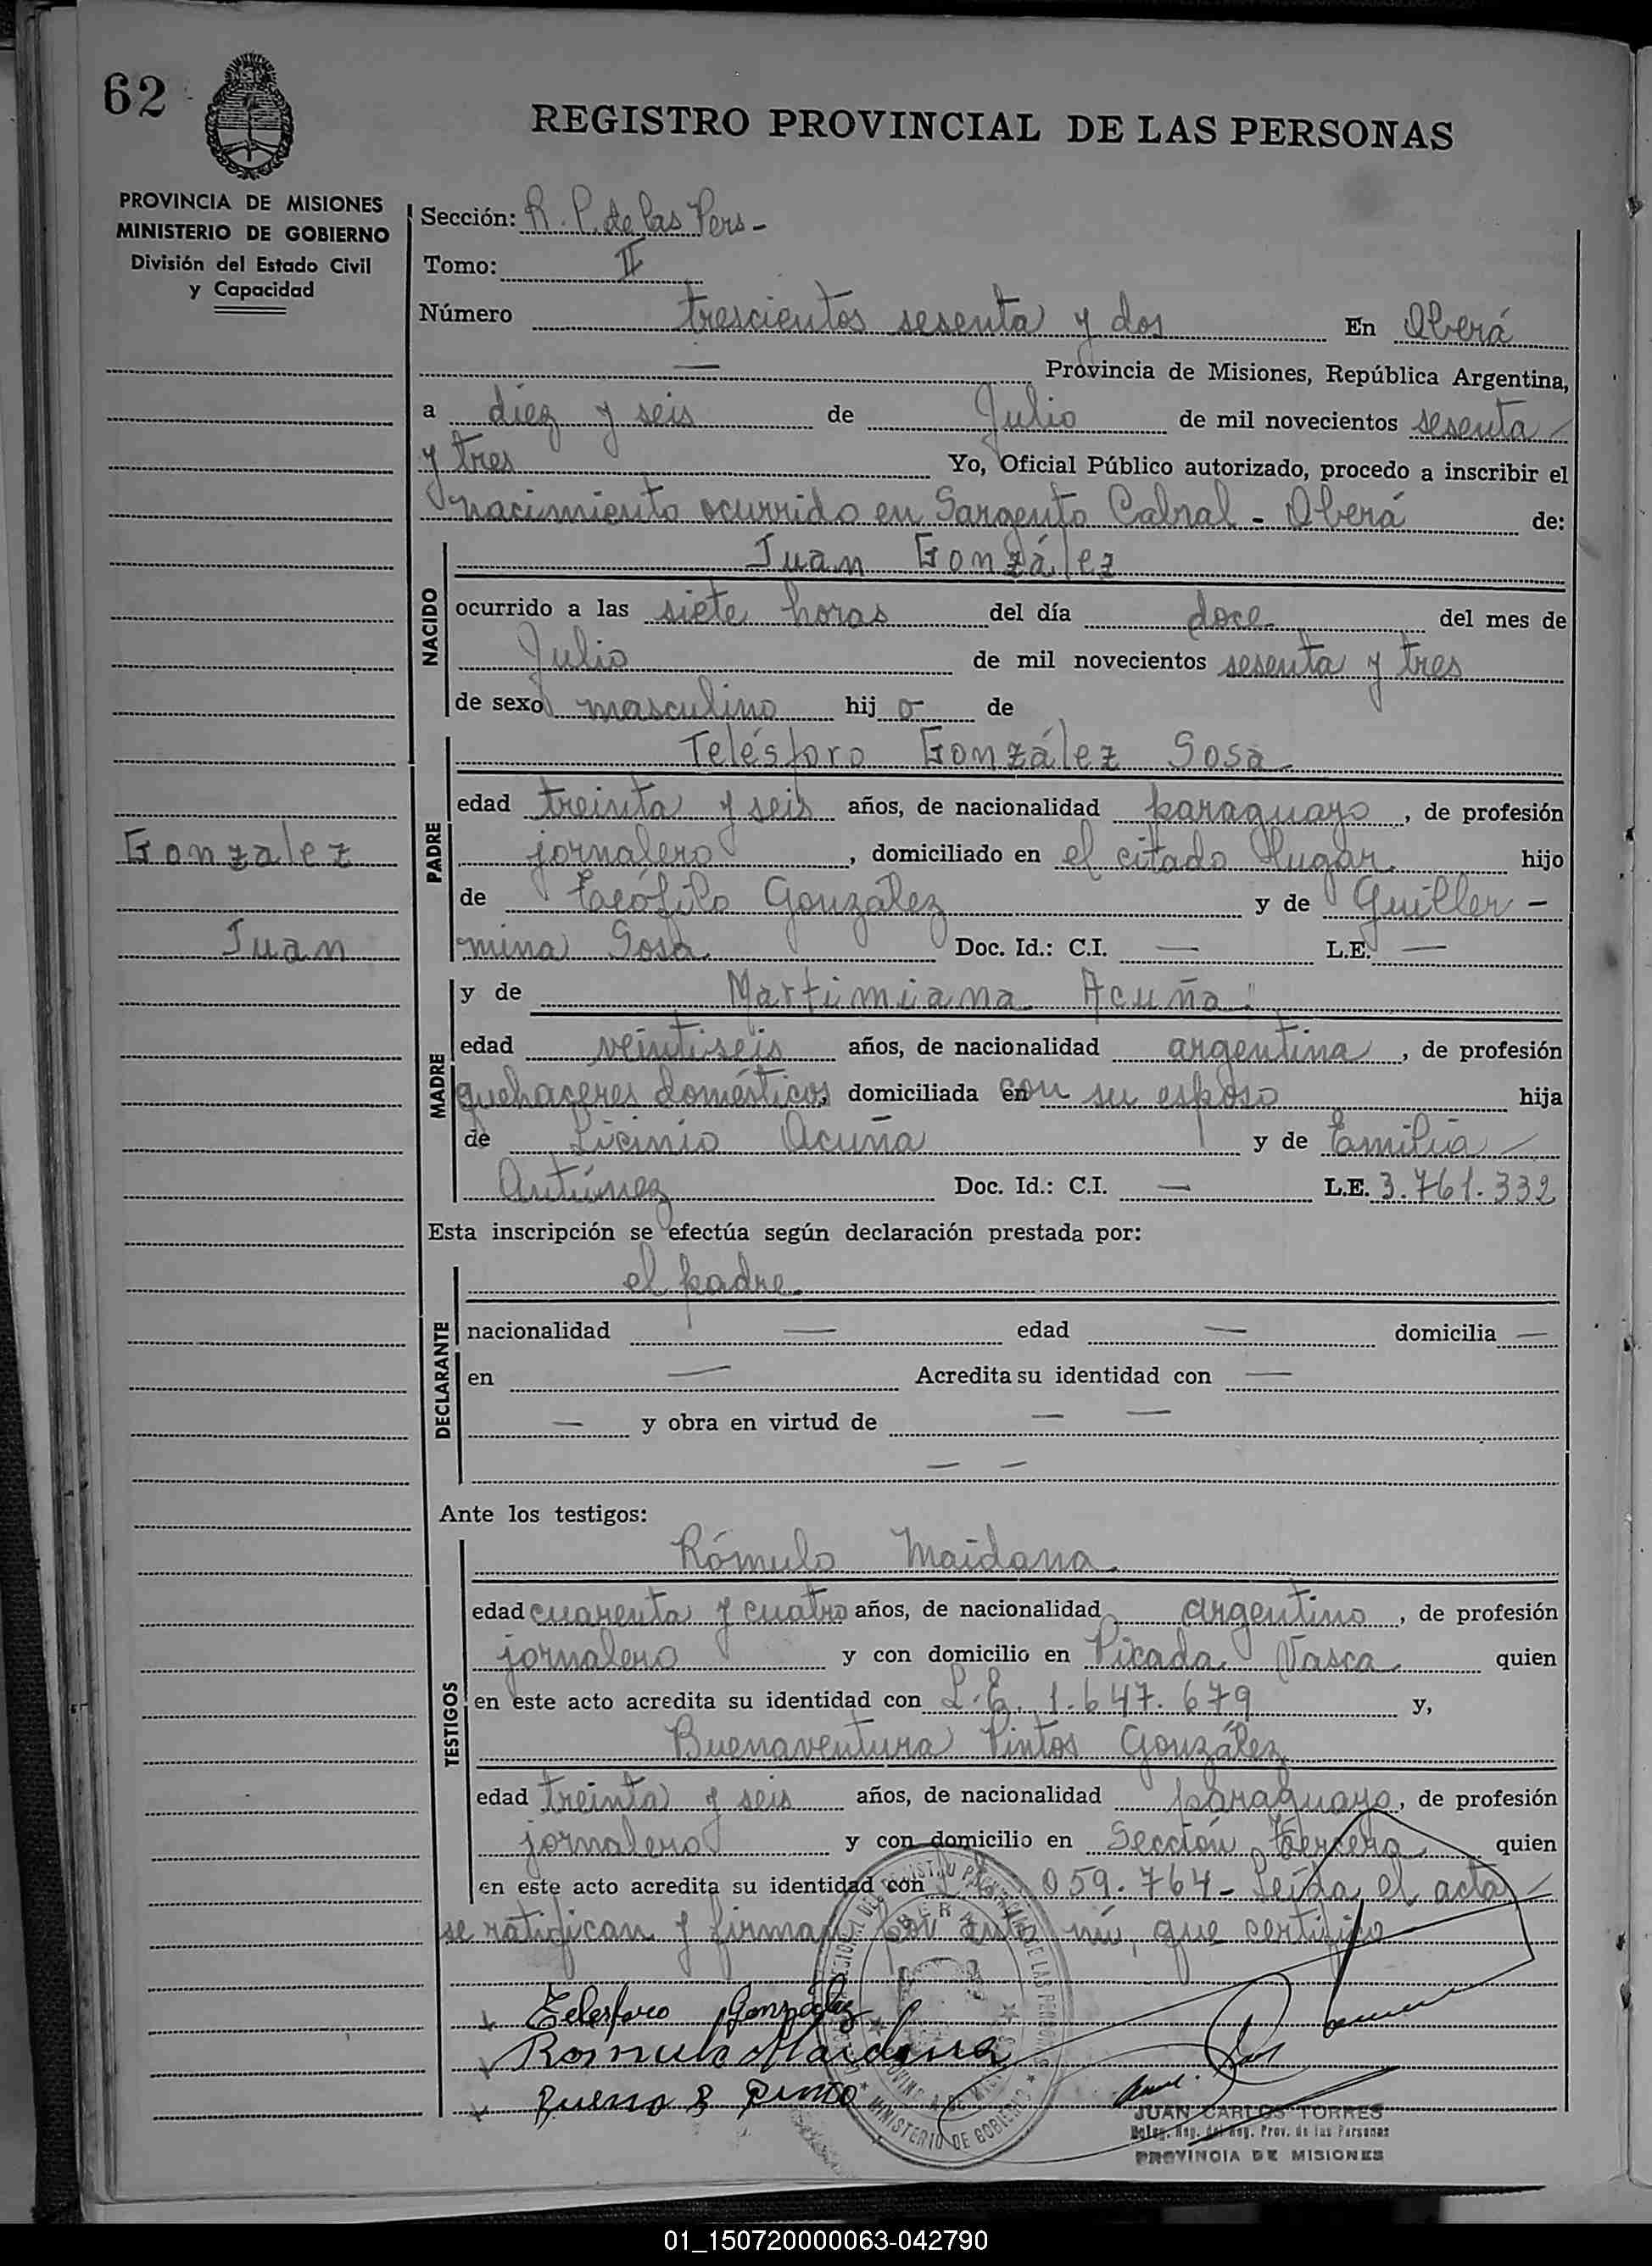 62
REGISTRO PROVINCIAL DE LAS PERSONAS
PROVINCIA DE MISIONES
MINISTERIO DE GOBIERNO
División del Estado Civil
y Capacidad
Sección: R. P. de las Pers -
Tomo: II
Número trescientos sesenta y dos En Oberá
— Provincia de Misiones, República Argentina,
a diez y seis de Julio de mil novecientos sesenta
y tres Yo, Oficial Público autorizado, procedo a inscribir el
nacimiento ocurrido en Sargento Cabral - Oberá de:
NACIDO
Juan González
ocurrido a las siete horas del día doce del mes de
Julio de mil novecientos sesenta y tres
de sexo masculino hij o de
PADRE
Telésforo González Sosa
edad treinta y seis años, de nacionalidad paraguayo, de profesión
jornalero, domiciliado en el citado lugar hijo
de Teófilo González y de Guiller -
mina Sosa Doc. Id.: C.I. — L.E. —
Gonzalez
Juan
MADRE
y de Martimiana Acuña
edad veintiseis años, de nacionalidad argentina, de profesión
quehaceres domésticos, domiciliada en con su esposo hija
de Licinio Acuña y de Emilia
Antúnez Doc. Id.: C.I. — L.E. 3.761.332
Esta inscripción se efectúa según declaración prestada por:
DECLARANTE
el padre
nacionalidad — edad — domicilia —
en — Acredita su identidad con —
— y obra en virtud de — —
— —
Ante los testigos:
TESTIGOS
Rómulo Maidana
edad cuarenta y cuatro años, de nacionalidad argentino, de profesión
jornalero y con domicilio en Picada Vasca quien
en este acto acredita su identidad con L.E. 1.647.679 y,
Buenaventura Pintos González
edad treinta y seis años, de nacionalidad paraguayo, de profesión
jornalero y con domicilio en Sección tercera quien
en este acto acredita su identidad con 059.764 - Leída el acta
se ratifican y firman por ante mí, que certifico
Telesforo González
Romulo Maidana
Bueno B Pinto
MINISTERIO DE GOBIERNO
JUAN CARLOS TORRES
Deleg. Reg. del Reg. Prov. de las Personas
PROVINCIA DE MISIONES
01_150720000063-042790